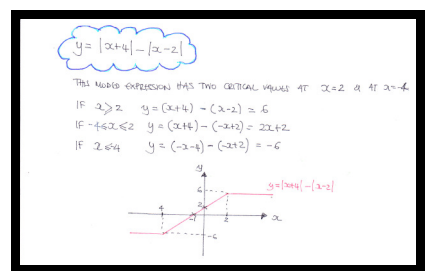 y = |x+4| - |x-2|
THIS MODED EXPRESSION HAS TWO CRITICAL VALUES AT x=2 & AT x=-4
IF x⩾2 y = (x+4) - (x-2) = 6
IF -4≤x≤2 y = (x+4) - (-x+2) = 2x+2
IF x≤4 y = (-x-4) - (-x+2) = -6
y
6
y=|x+4|-|x-2|
2
4
-1
2
x
-6